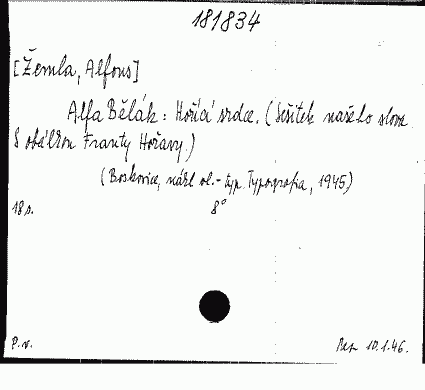 181834
[Žemla, Alfons]
Alfa Bělák: Hořící srdce. (Sešitek našeho slova.
S obálkou Franty Hořavy.)
(Boskovice, nákl. vl. - typ. Typografia, 1945)
18 s. 8°
P. v. 10.1.46.